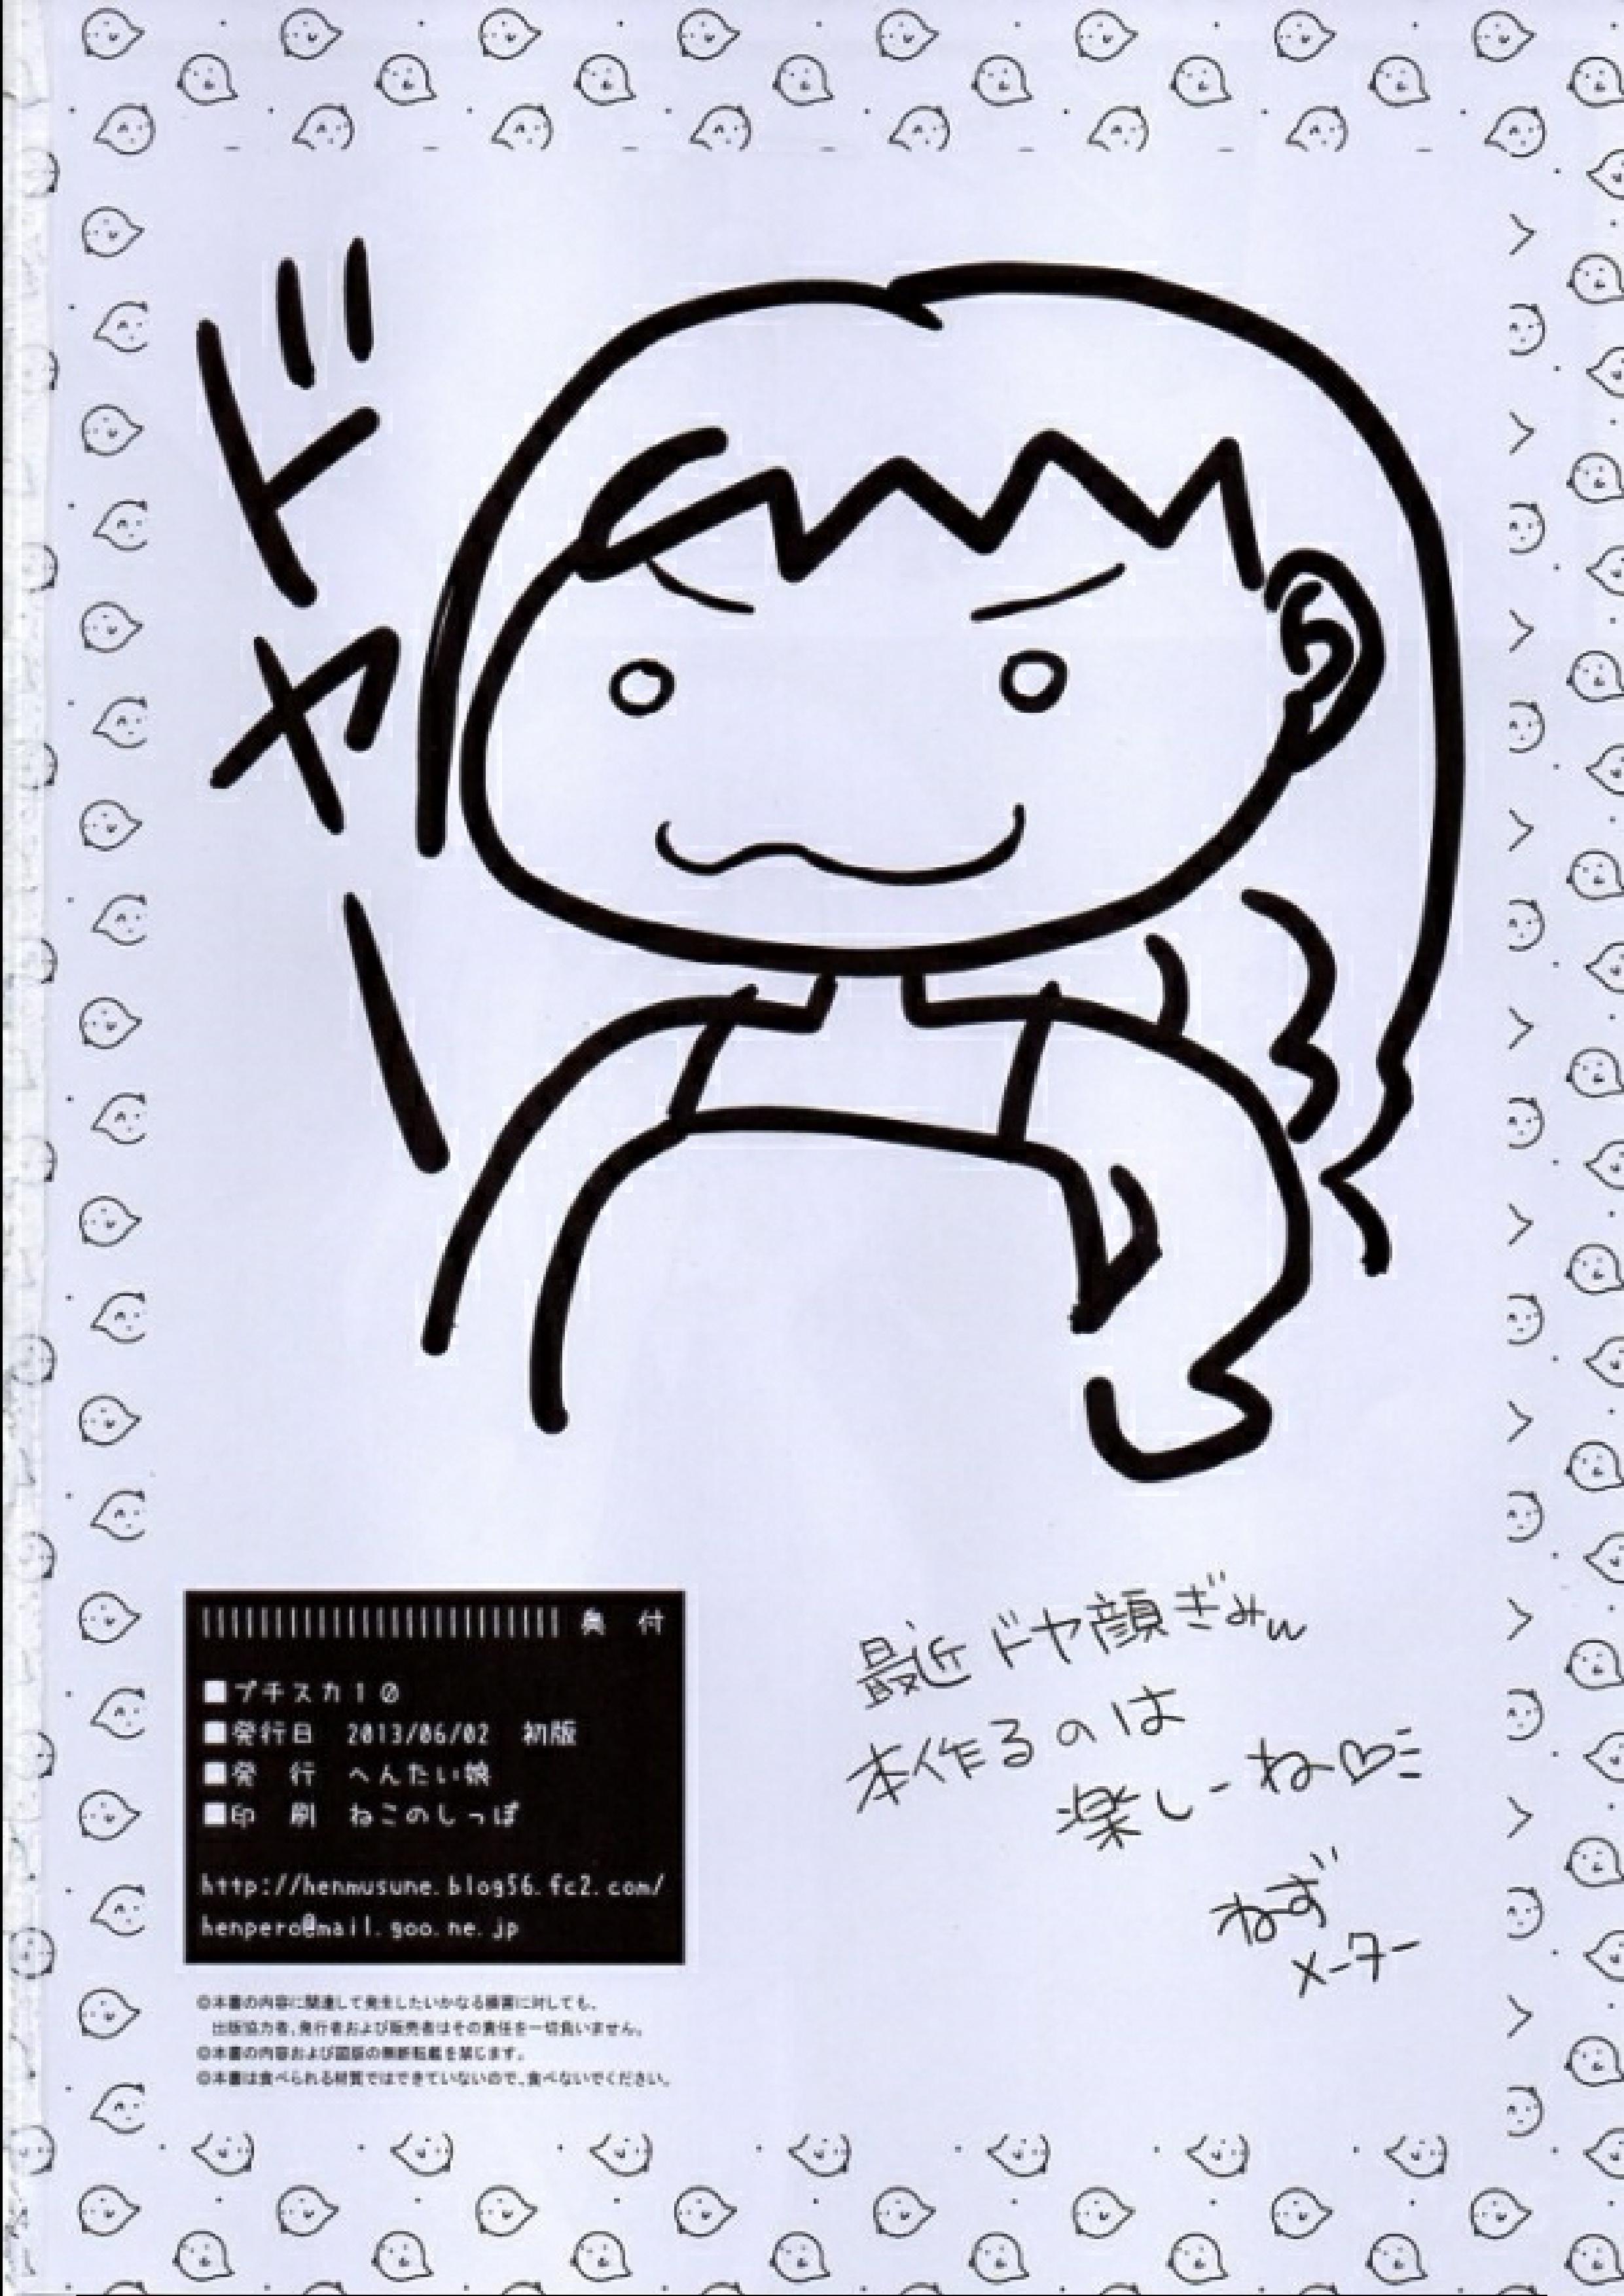 ドヤー
奥付
■プチスカ10
■発行日 2013/06/02 初版
■発 行 へんたい娘
■印 刷 ねこのしっぽ
http://henmusune.blog56.fc2.com/
henpero@mail.goo.ne.jp
◎本書の内容に関連して発生したいかなる損害に対しても、
出版協力者、発行者および販売者はその責任を一切負いません。
◎本書の内容および図版の無断転載を禁じます。
◎本書は食べられる材質ではできていないので、食べないでください。
最近ドヤ顔ぎみw
本作るのは
楽しーね♡
ねず
メーター